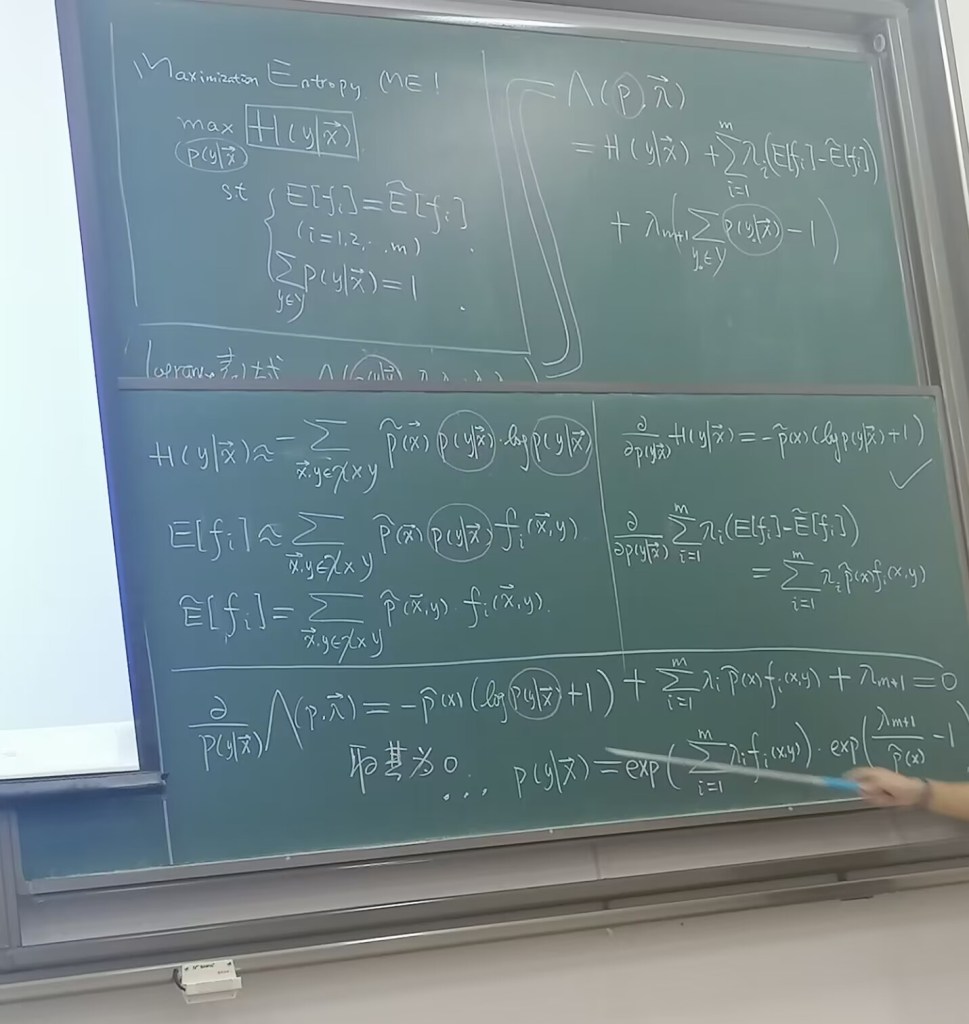 Maximization Entropy (ME!
max H(y|x⃗)
p(y|x⃗)
s.t { E[fᵢ] = Ê[fᵢ]
(i=1,2,...m)
∑_{y∈Y} p(y|x⃗) = 1
Λ(p, λ⃗)
= H(y|x⃗) + ∑_{i=1}^{m} λᵢ(E[fᵢ] - Ê[fᵢ])
+ λ_{m+1}(∑_{y∈Y} p(y|x⃗) - 1)
H(y|x⃗) ≈ -∑_{x⃗,y∈χ×y} p̃(x⃗) p(y|x⃗)·log p(y|x⃗)
E[fᵢ] ≈ ∑_{x⃗,y∈χ×y} p̂(x⃗) p(y|x⃗) fᵢ(x⃗,y)
Ê[fᵢ] = ∑_{x⃗,y∈χ×y} p̂(x⃗,y) fᵢ(x⃗,y).
∂/∂p(y|x⃗) H(y|x⃗) = -p̂(x)(log p(y|x⃗)+1) ✓
∂/∂p(y|x⃗) ∑_{i=1}^{m} λᵢ(E[fᵢ] - Ê[fᵢ])
= ∑_{i=1}^{m} λᵢ p̂(x) fᵢ(x,y)
∂/p(y|x⃗) Λ(p,λ⃗) = -p̂(x)(log p(y|x⃗)+1) + ∑_{i=1}^{m} λᵢ p̂(x) fᵢ(x,y) + λ_{m+1} = 0
为0 ... p(y|x⃗) = exp(∑_{i=1}^{m} λᵢfᵢ(x,y))·exp(λ_{m+1}/p̂(x) - 1)